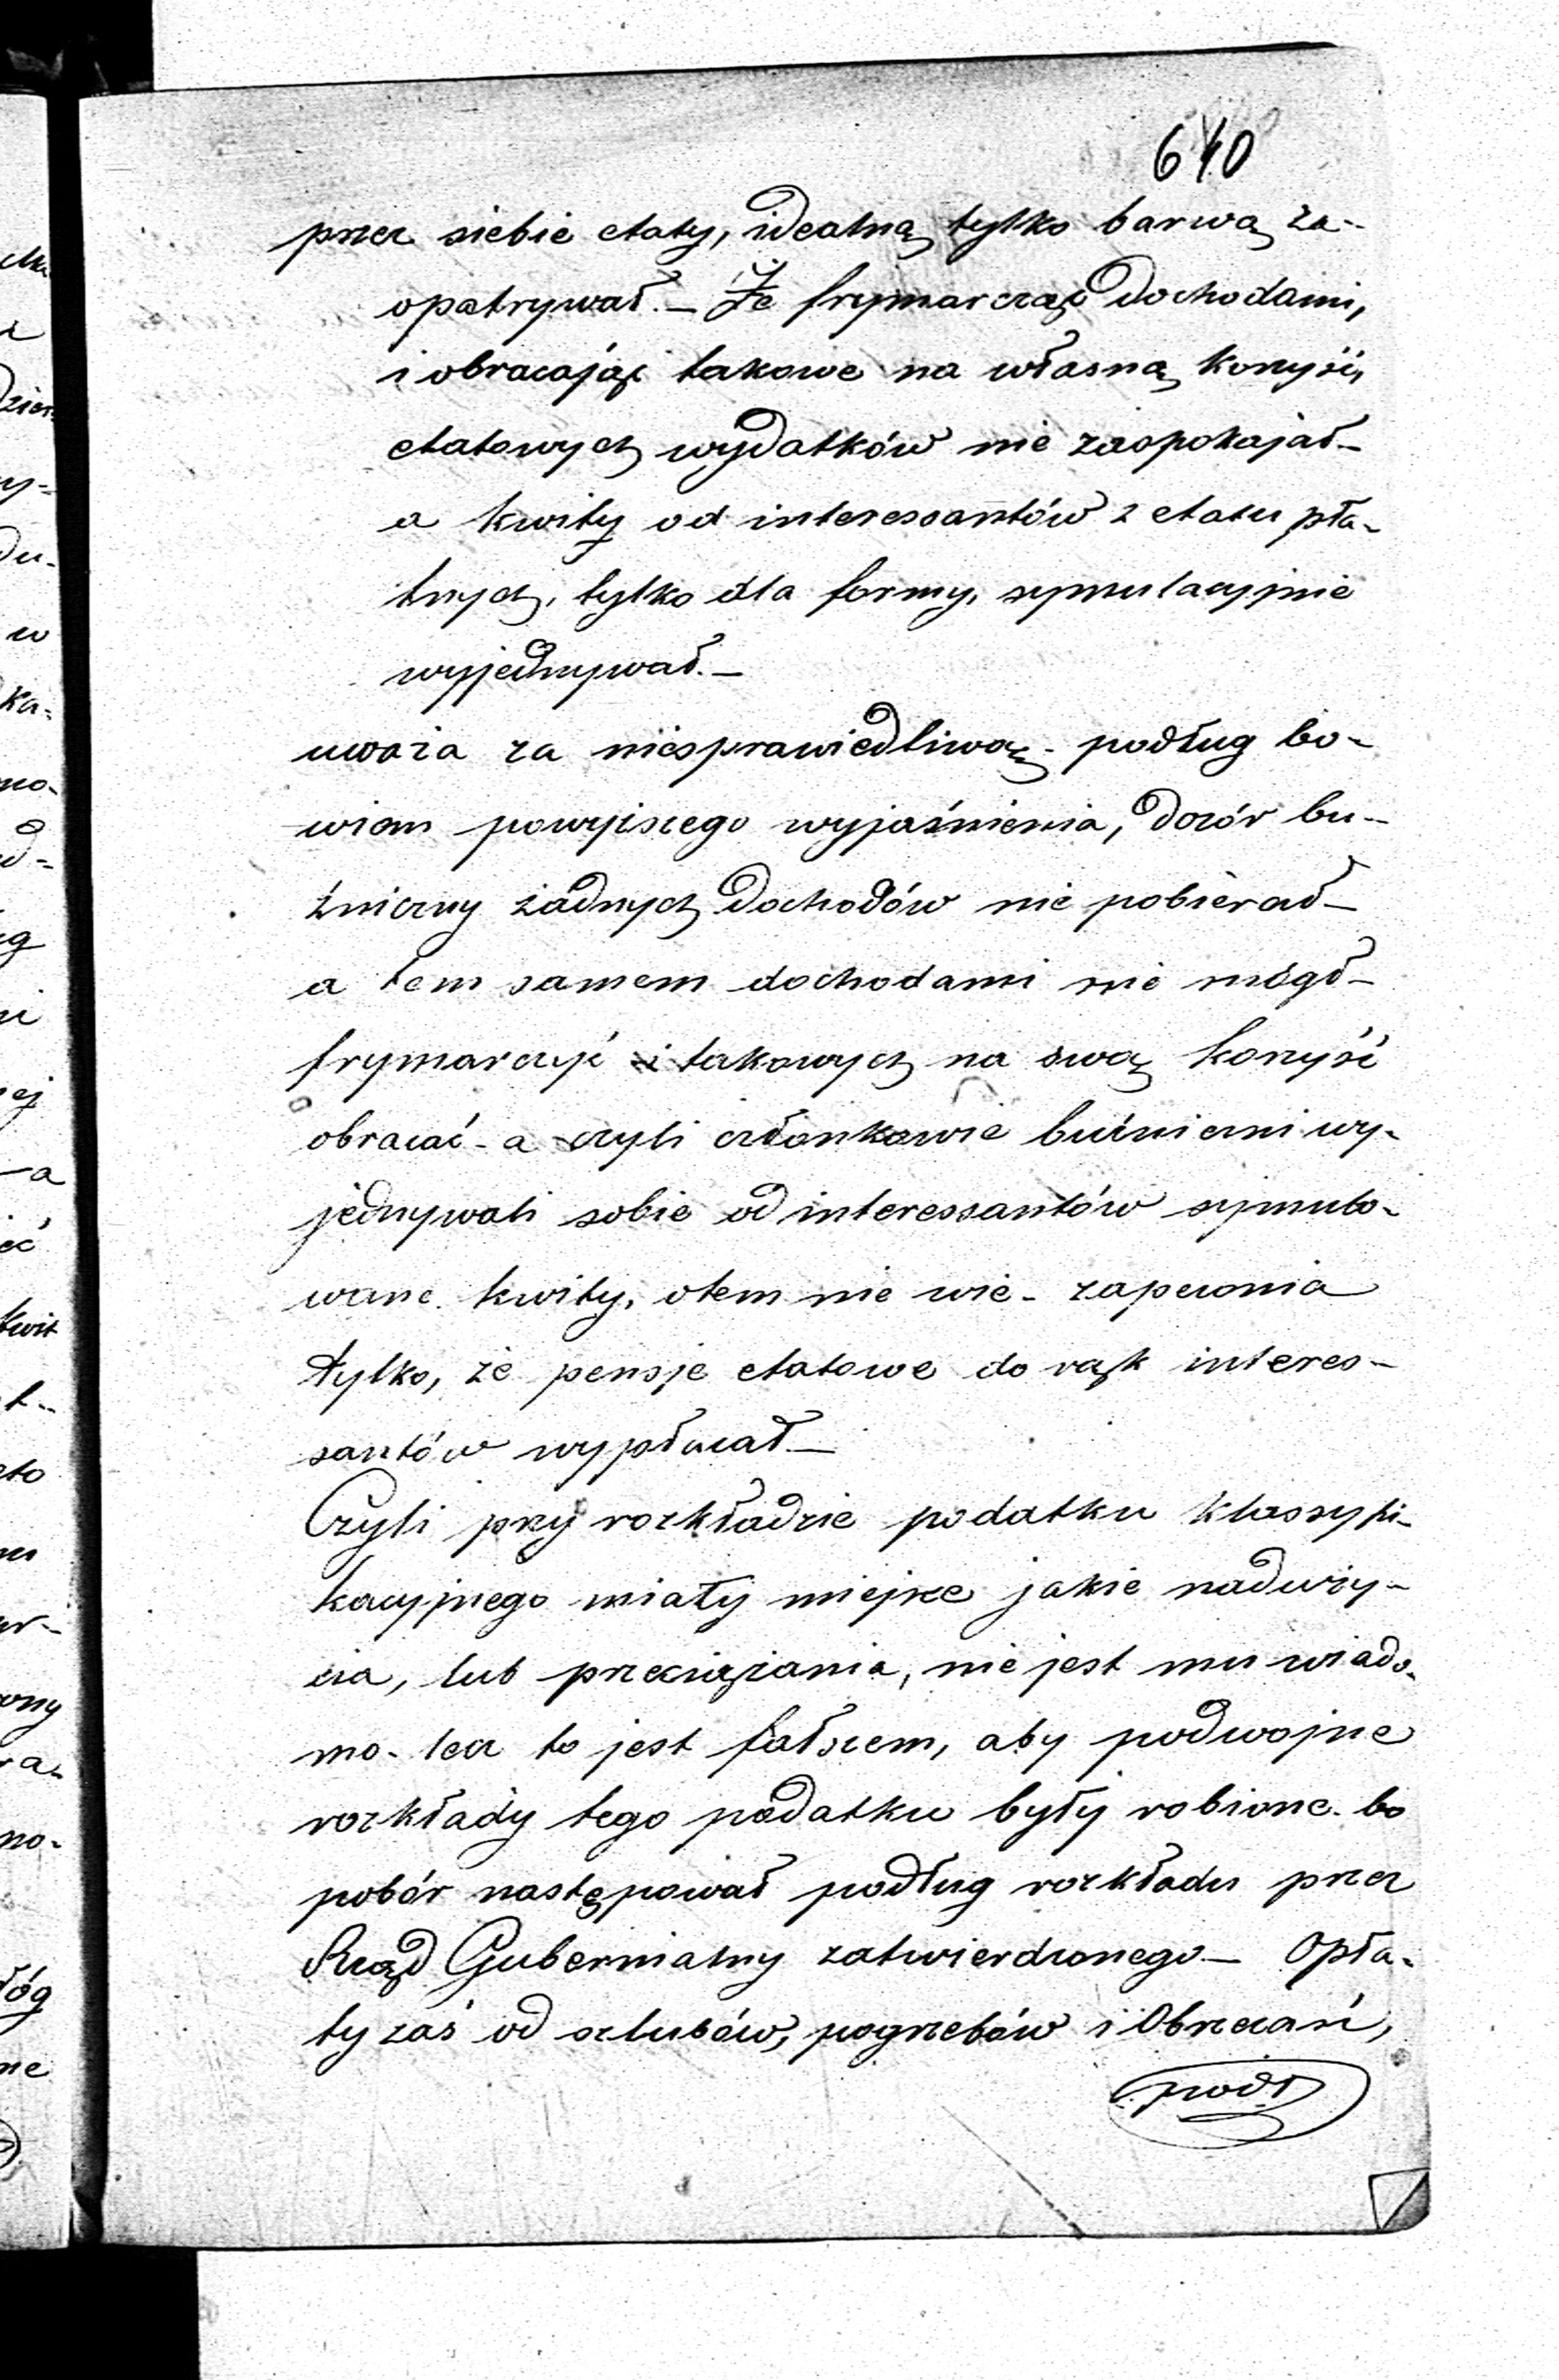 640
przez siebie etaty, idealną tylko barwą za-
opatrywał. — Że frymarcząc dochodami,
i obracając takowe na własną korzyść,
etatowych wydatków nie zaspokajał —
a kwity od interessantów z etatu pła-
tnych, tylko dla formy, symulacyjnie
wyjednywał. —
uważa za niesprawiedliwą - podług bo-
wiem powyższego wyjaśnienia, dozór bu-
źniczny żadnych dochodów nie pobierał —
a tem samem dochodami nie mógł —
frymarczyć i takowych na swą korzyść
obracać - a czyli członkowie buźniczni wy-
jednywali sobie od interessantów symulo-
wane kwity, otem nie wie - zapewnia
tylko, że pensje etatowe do rąk interes-
santów wypłacał —
Czyli przy rozkładzie podatku klassyfi-
kacyjnego miały miejsce jakie naduży-
cia, lub przeciążania, nie jest mu wiado-
mo - lecz to jest fałszem, aby podwojne
rozkłady tego podatku były robione - bo
pobór następował podług rozkładu przez
Rząd Gubernialny zatwierdzonego — Opła-
ty zaś od szlubów, pogrzebów i Obrzezań,
podł